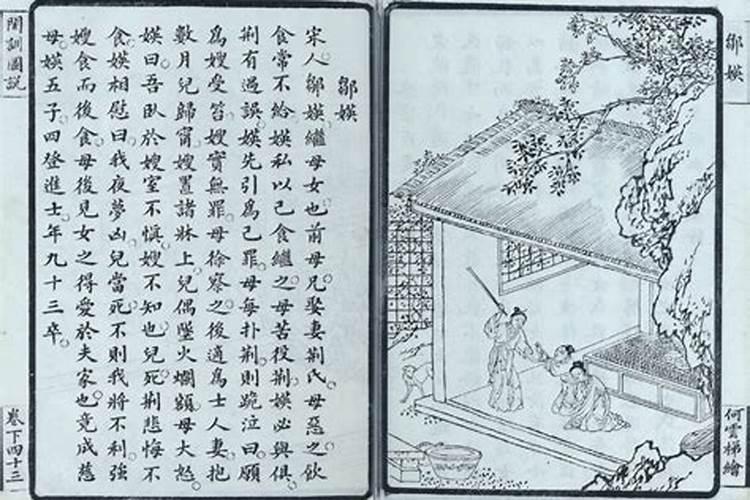 鄒媖
何雲梯繪
鄒媖
宋人鄒媖繼母女也。前母兄娶妻荊氏。母惡之。飲
食常不給。媖私以己食繼之。母苦役荊。媖必與俱。
荊有過誤。媖先引爲己罪。母每扑荊。則跪泣曰。願
爲嫂受笞。嫂實無罪。母徐察之。後適爲士人妻。抱
數月兒歸甯。嫂置諸牀上。兒偶墜火爛額。母大怒。
媖曰。吾臥於嫂室不慎。嫂不知也。兒死。荊悲悔不
食。媖相慰曰。我夜夢凶。兒當死。不則我將不利。強
嫂食而後食。母後見女之得愛於夫家也。竟成慈
母。媖五子。四登進士。年九十三卒。
閨訓圖說
卷下四十三